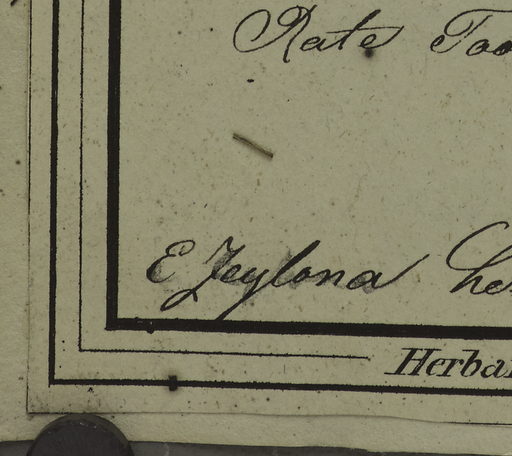 Rate Too
E Zeylona He
Herba